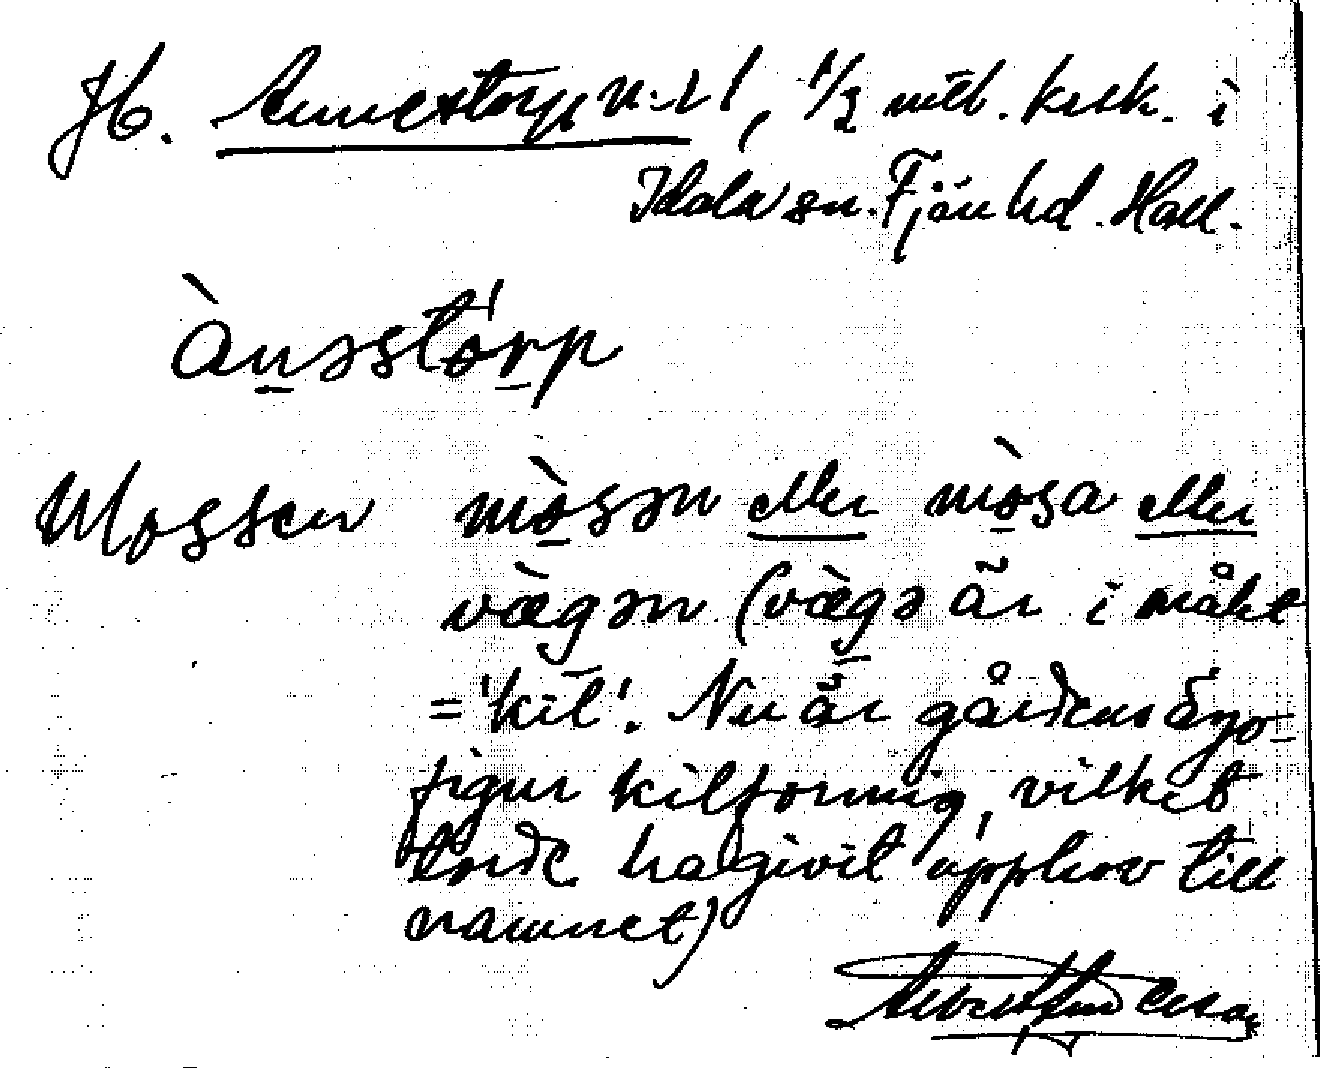 Hb. Annestorp n:r 1, 1/3 mtl. krsk. i
Idala sn. Fjäre hd. Hall.
ànəstórp
Mossen mòsən eller mòsa eller
vægən (vægə är i målet
= 'kil'. Nu är gårdens ägo-
figur kilformig, vilket
torde ha givit upphov till
namnet)